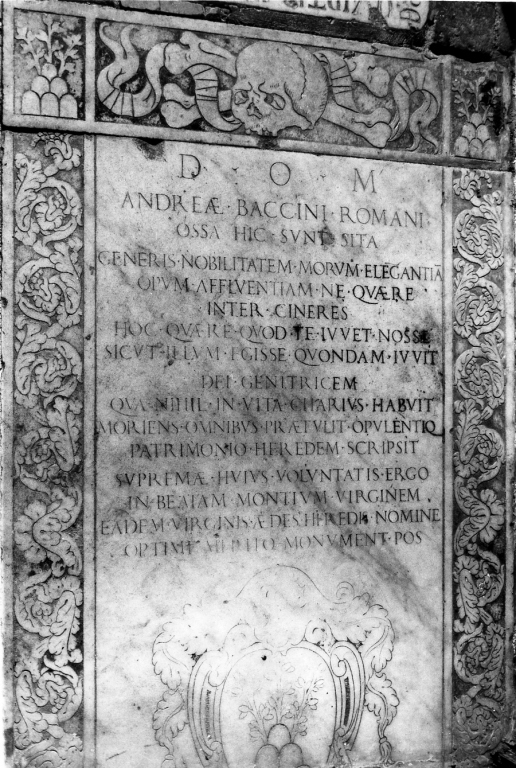 D · O · M
ANDREÆ · BACCINI · ROMANI
OSSA HIC · SUNT · SITA
GENERIS · NOBILITATEM · MORVM · ELEGANTIĀ
OPVM · AFFLVENTIAM · NE · QVÆRE
INTER · CINERES
HOC · QVÆRE · QVOD · TE · IVVET · NOSSE
SICVT · ILLVM · EGISSE · QVONDAM · IVVIT
DEI · GENITRICEM
QVA · NIHIL · IN · VITA · CHARIVS · HABVIT
MORIENS · OMNIBVS · PRÆTVLIT · OPVLENTIQ
PATRIMONIO · HEREDEM · SCRIPSIT
SVPREMÆ · HVIVS · VOLVNTATIS · ERGO
IN · BEATAM · MONTIVM · VIRGINEM
EADEM · VIRGINIS · ÆDES · HEREDIS · NOMINE
OPTIME MERITO · MONVMENT · POS